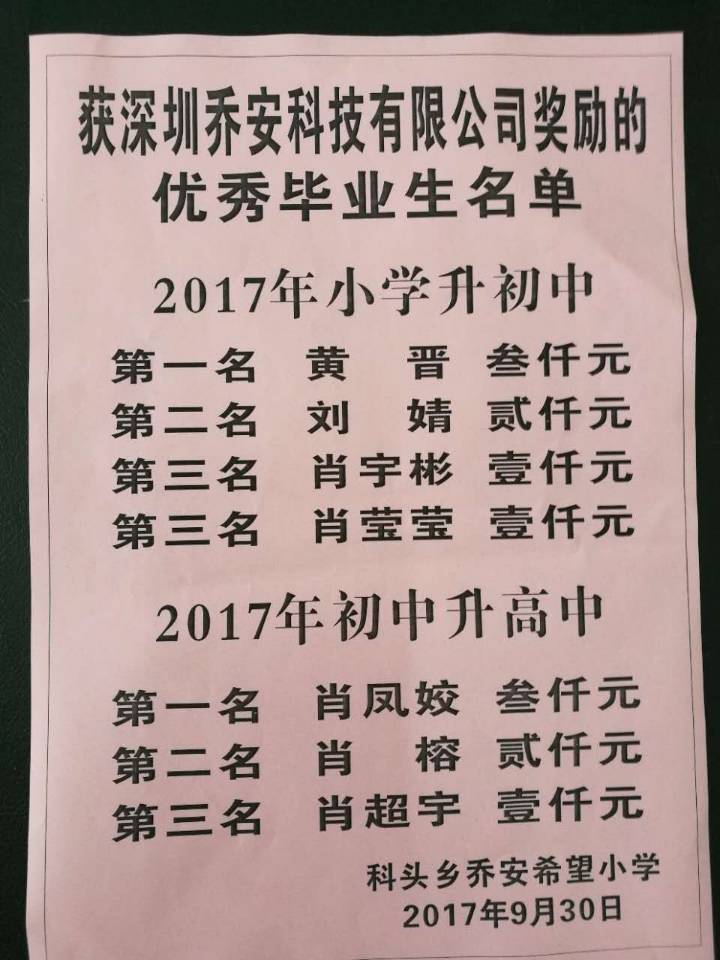 获深圳乔安科技有限公司奖励的
优秀毕业生名单
2017年小学升初中
第一名 黄 晋 叁仟元
第二名 刘 婧 贰仟元
第三名 肖宇彬 壹仟元
第三名 肖莹莹 壹仟元
2017年初中升高中
第一名 肖凤姣 叁仟元
第二名 肖 榕 贰仟元
第三名 肖超宇 壹仟元
科头乡乔安希望小学
2017年9月30日